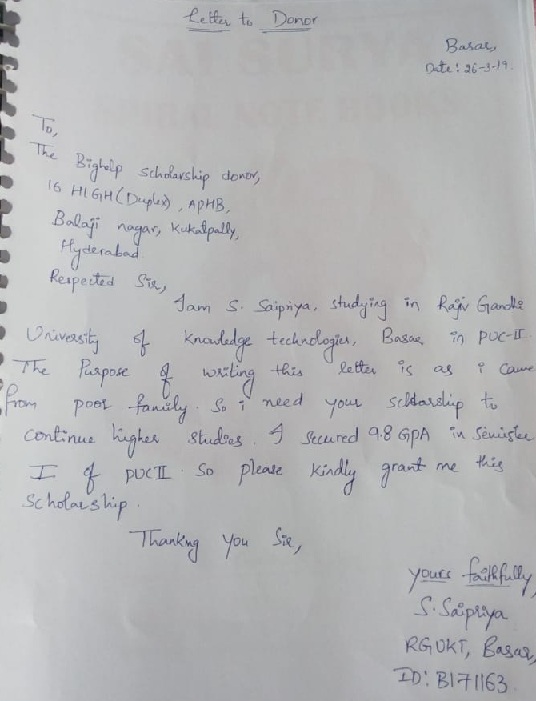 Letter to Donor
Basar,
Date: 26-9-19.
To,
The Bighelp scholarship donor,
16 HIGH (Duplex), APHB,
Balaji nagar, Kukatpally,
Hyderabad
Respected Sir,
I am S. Saipriya, studying in Rajiv Gandhi
University of knowledge technologies, Basar in PUC-II.
The Purpose of writing this letter is as i came
from poor family. So i need your scholarship to
continue higher studies. I secured 9.8 GPA in Semister
I of PUC II. So please kindly grant me this
Scholarship.
Thanking you Sir,
yours faithfully,
S. Saipriya
RGUKT, Basar,
ID: B171163.